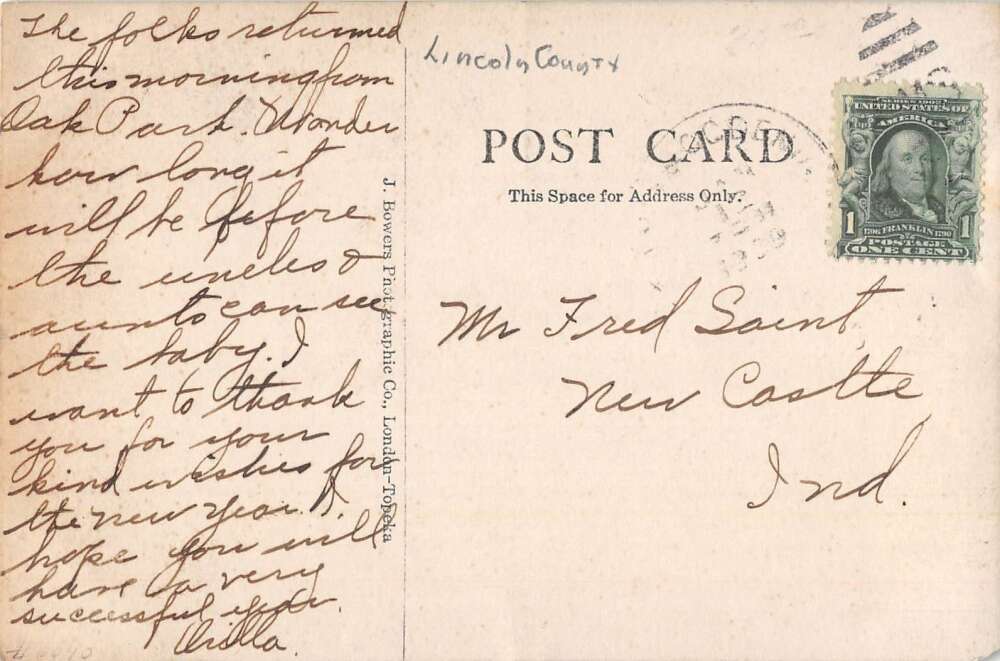 The folks returned
this morning from
Oak Park. Wonder
how long it
will be before
the uncles &
aunts can see
the baby. I
want to thank
you for your
kind wishes for
the new year. I
hope you will
have a very
successful year.
Lincoln County
POST CARD
This Space for Address Only.
J. Bowers Photographic Co., London-Topeka
SERIES 1902
UNITED STATES OF
AMERICA
1706 FRANKLIN 1790
POSTAGE
1 ONE CENT
Mr Fred Saint,
New Castle
Ind.